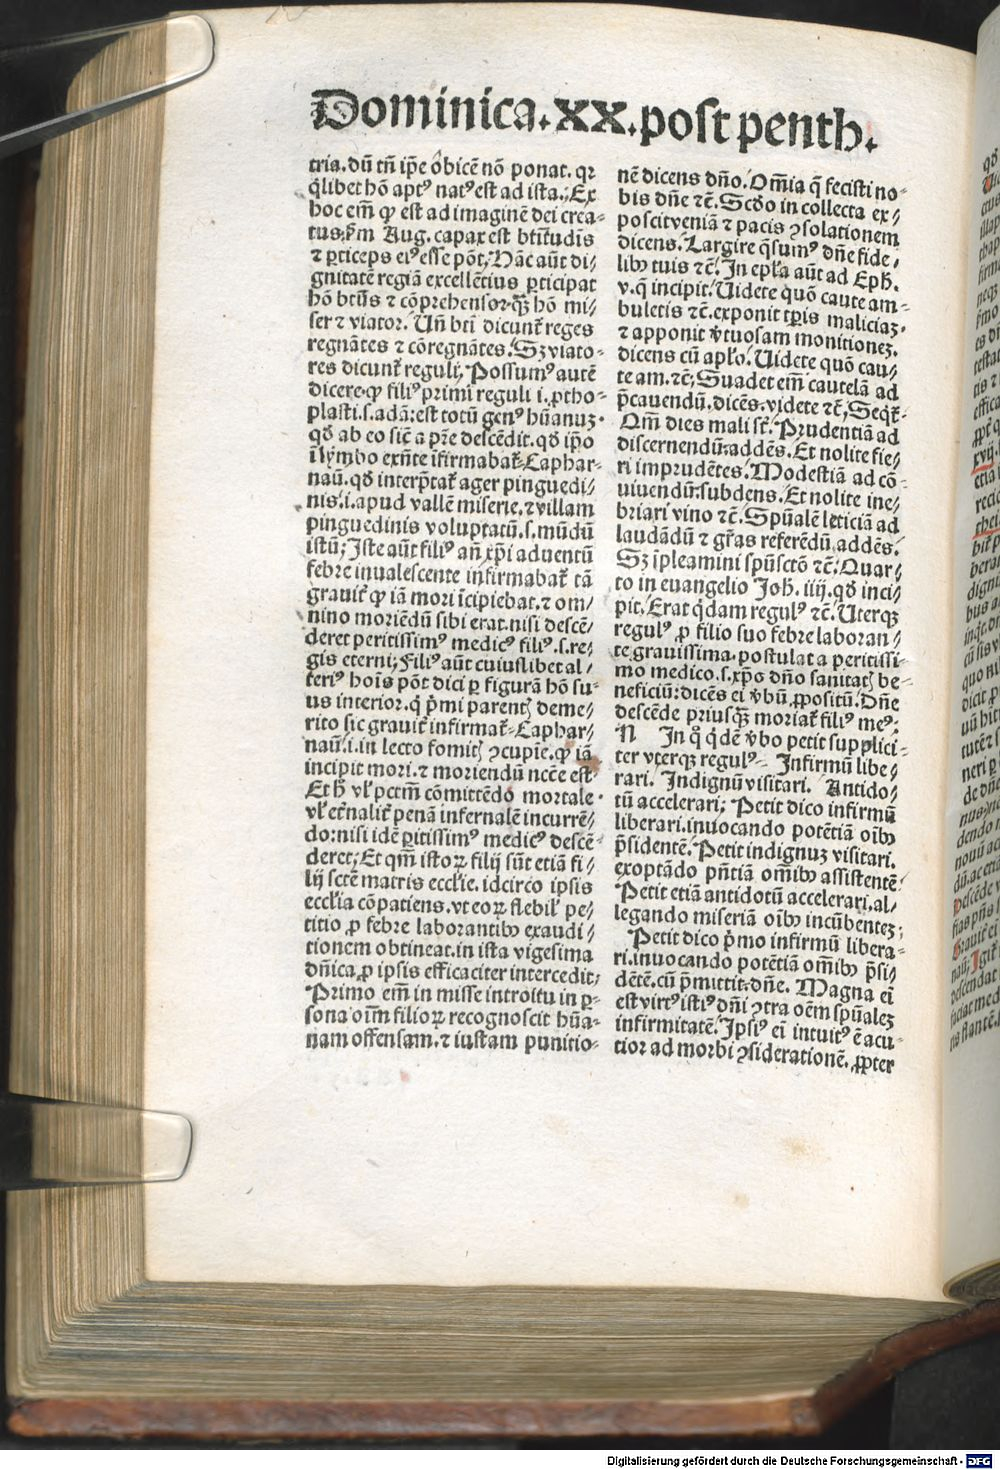 Dominica. XX. post penth.
tria. dū tñ ip̄e obicē nō ponat. qr
q̄libet hō aptꝰ natꝰ est ad ista. Ex
hoc em̄ ꝙ est ad imaginē dei crea⸗
tus, p̄m Aug. capax est bt̄itudīs
⁊ ꝑticeps eiꝰ esse pōt, Hāc aūt di⸗
gnitatē regiā excellētius ꝑticipat
hō bt̄us ⁊ cōprehensor. qꝫ hō mi⸗
ser ⁊ viator. Uñ bt̄i dicunt̄ reges
regnātes ⁊ cōregnātes. Sꝫ viato⸗
res dicunt̄ reguli, Possumꝰ autē
dicere. ꝙ filiꝰ primi reguli .i. ꝓtho⸗
plasti. s. adā: est totū genꝰ hūanuꝫ.
qđ ab eo sic̄ a pr̄e descēdit. qđ ip̄o
ī lymbo exn̄te īfirmabat̄ Caphar⸗
naū. qđ interp̄tat̄ ager pinguedi⸗
nis. i. apud vallē miserie. ⁊ villam
pinguedinis voluptatū. s. mūdū
istū; Iste aūt filiꝰ añ xp̄i aduentū
febre inualescente infirmabat̄ tā
grauit̄ ꝙ iā mori īcipiebat. ⁊ om⸗
nino moriēdū sibi erat. nisi descē⸗
deret peritissimꝰ medicꝰ filiꝰ. s. re⸗
gis eterni; Filiꝰ aūt cuiuslibet al⸗
teriꝰ hoīs pōt dici ꝑ figurā hō su⸗
us interior. q̇ p̄mi parentꝭ deme⸗
rito sic grauit̄ infirmat̄ Caphar⸗
naū. i. in lecto fomitꝭ ꝯcupīe. ꝙ iā
incipit mori. ⁊ moriendū nc̄ce est
Et ħ vl̓ pctm̄ cōmittēdo mortale
vl̓ et̄nalit̄ penā infernalē incurrē⸗
do: nisi idē ꝑitissimꝰ medicꝰ descē⸗
deret; Et qm̄ istoꝝ filij sūt etiā fi⸗
lij sctē matris eccl̓ie. idcirco ipsis
eccl̓ia cōpatiens. vt eoꝝ flebil̓ pe⸗
titio ꝓ febre laborantibꝰ exaudi⸗
tionem obtineat. in ista vigesima
dn̄ica ꝓ ipsis efficaciter intercedit;
Primo em̄ in misse introitu in ꝑ⸗
sona oīm filioꝝ recognoscit hūa⸗
nam offensam. ⁊ iustam punitio⸗
nē dicens dn̄o. Om̄ia q̄ fecisti no⸗
bis dn̄e ⁊c̄. Scđo in collecta ex⸗
poscit veniā ⁊ pacis ꝯsolationem
dicens. Largire q̄sumꝰ dn̄e fide⸗
libꝰ tuis ⁊c̄. In epl̓a aūt ad Eph.
v. q̄ incipit. Uidete quō caute am⸗
buletis ⁊c̄. exponit tꝑis maliciaꝫ.
⁊ apponit v̓tuosam monitioneꝫ.
dicens cū apl̓o. Uidete quō cau⸗
te am. ⁊c̄; Suadet em̄ cautelā ad
p̄cauendū. dicēs. videte ⁊c̄; Seqt̄.
Qm̄ dies mali st̄. Prudentiā ad
discernendū: addēs. Et nolite fie⸗
ri imprudētes. Modestiā ad cō⸗
uiuendū: subdens. Et nolite ine⸗
briari vino ⁊c̄. Spūalē leticiā ad
laudādū ⁊ gr̄as referēdū addēs.
Sꝫ īpleamini spūsctō ⁊c̄. Quar⸗
to in euangelio Joh. iiij. qđ inci⸗
pit. Erat q̇dam regulꝰ ⁊c̄. Uterqꝫ
regulꝰ ꝓ filio suo febre laboran⸗
te grauissima. postulat a peritissi⸗
mo medico. s. xp̄o dn̄o sanitatꝭ be⸗
neficiū: dicēs ei v̓bū ꝓpositū. Dn̄e
descēde priusqꝫ moriat̄ filiꝰ meꝰ.
N In q̊ q̇dē v̓bo petit supplici⸗
ter vterqꝫ regulꝰ Infirmū libe⸗
rari. Indignū visitari. Antido⸗
tū accelerari; Petit dico infirmū
liberari. inuocando potētiā oībꝰ
p̄sidentē. Petit indignuꝫ visitari.
exoptādo pn̄tiā om̄ibꝰ assistentē.
Petit etiā antidotū accelerari. al⸗
legando miseriā oībꝰ incūbenteꝫ;
Petit dico p̄mo infirmū libera⸗
ri. inuocando potētiā om̄ibꝰ p̄si⸗
dētē. cū p̄mittit. dn̄e. Magna ei
est virtꝰ istiꝰ dn̄i ꝯtra oēm spūaleꝫ
infirmitatē. Ipsiꝰ ei intuitꝰ ē acu⸗
tior ad morbi ꝯsiderationē. ꝓpter
Digitalisierung gefördert durch die Deutsche Forschungsgemeinschaft - DFG